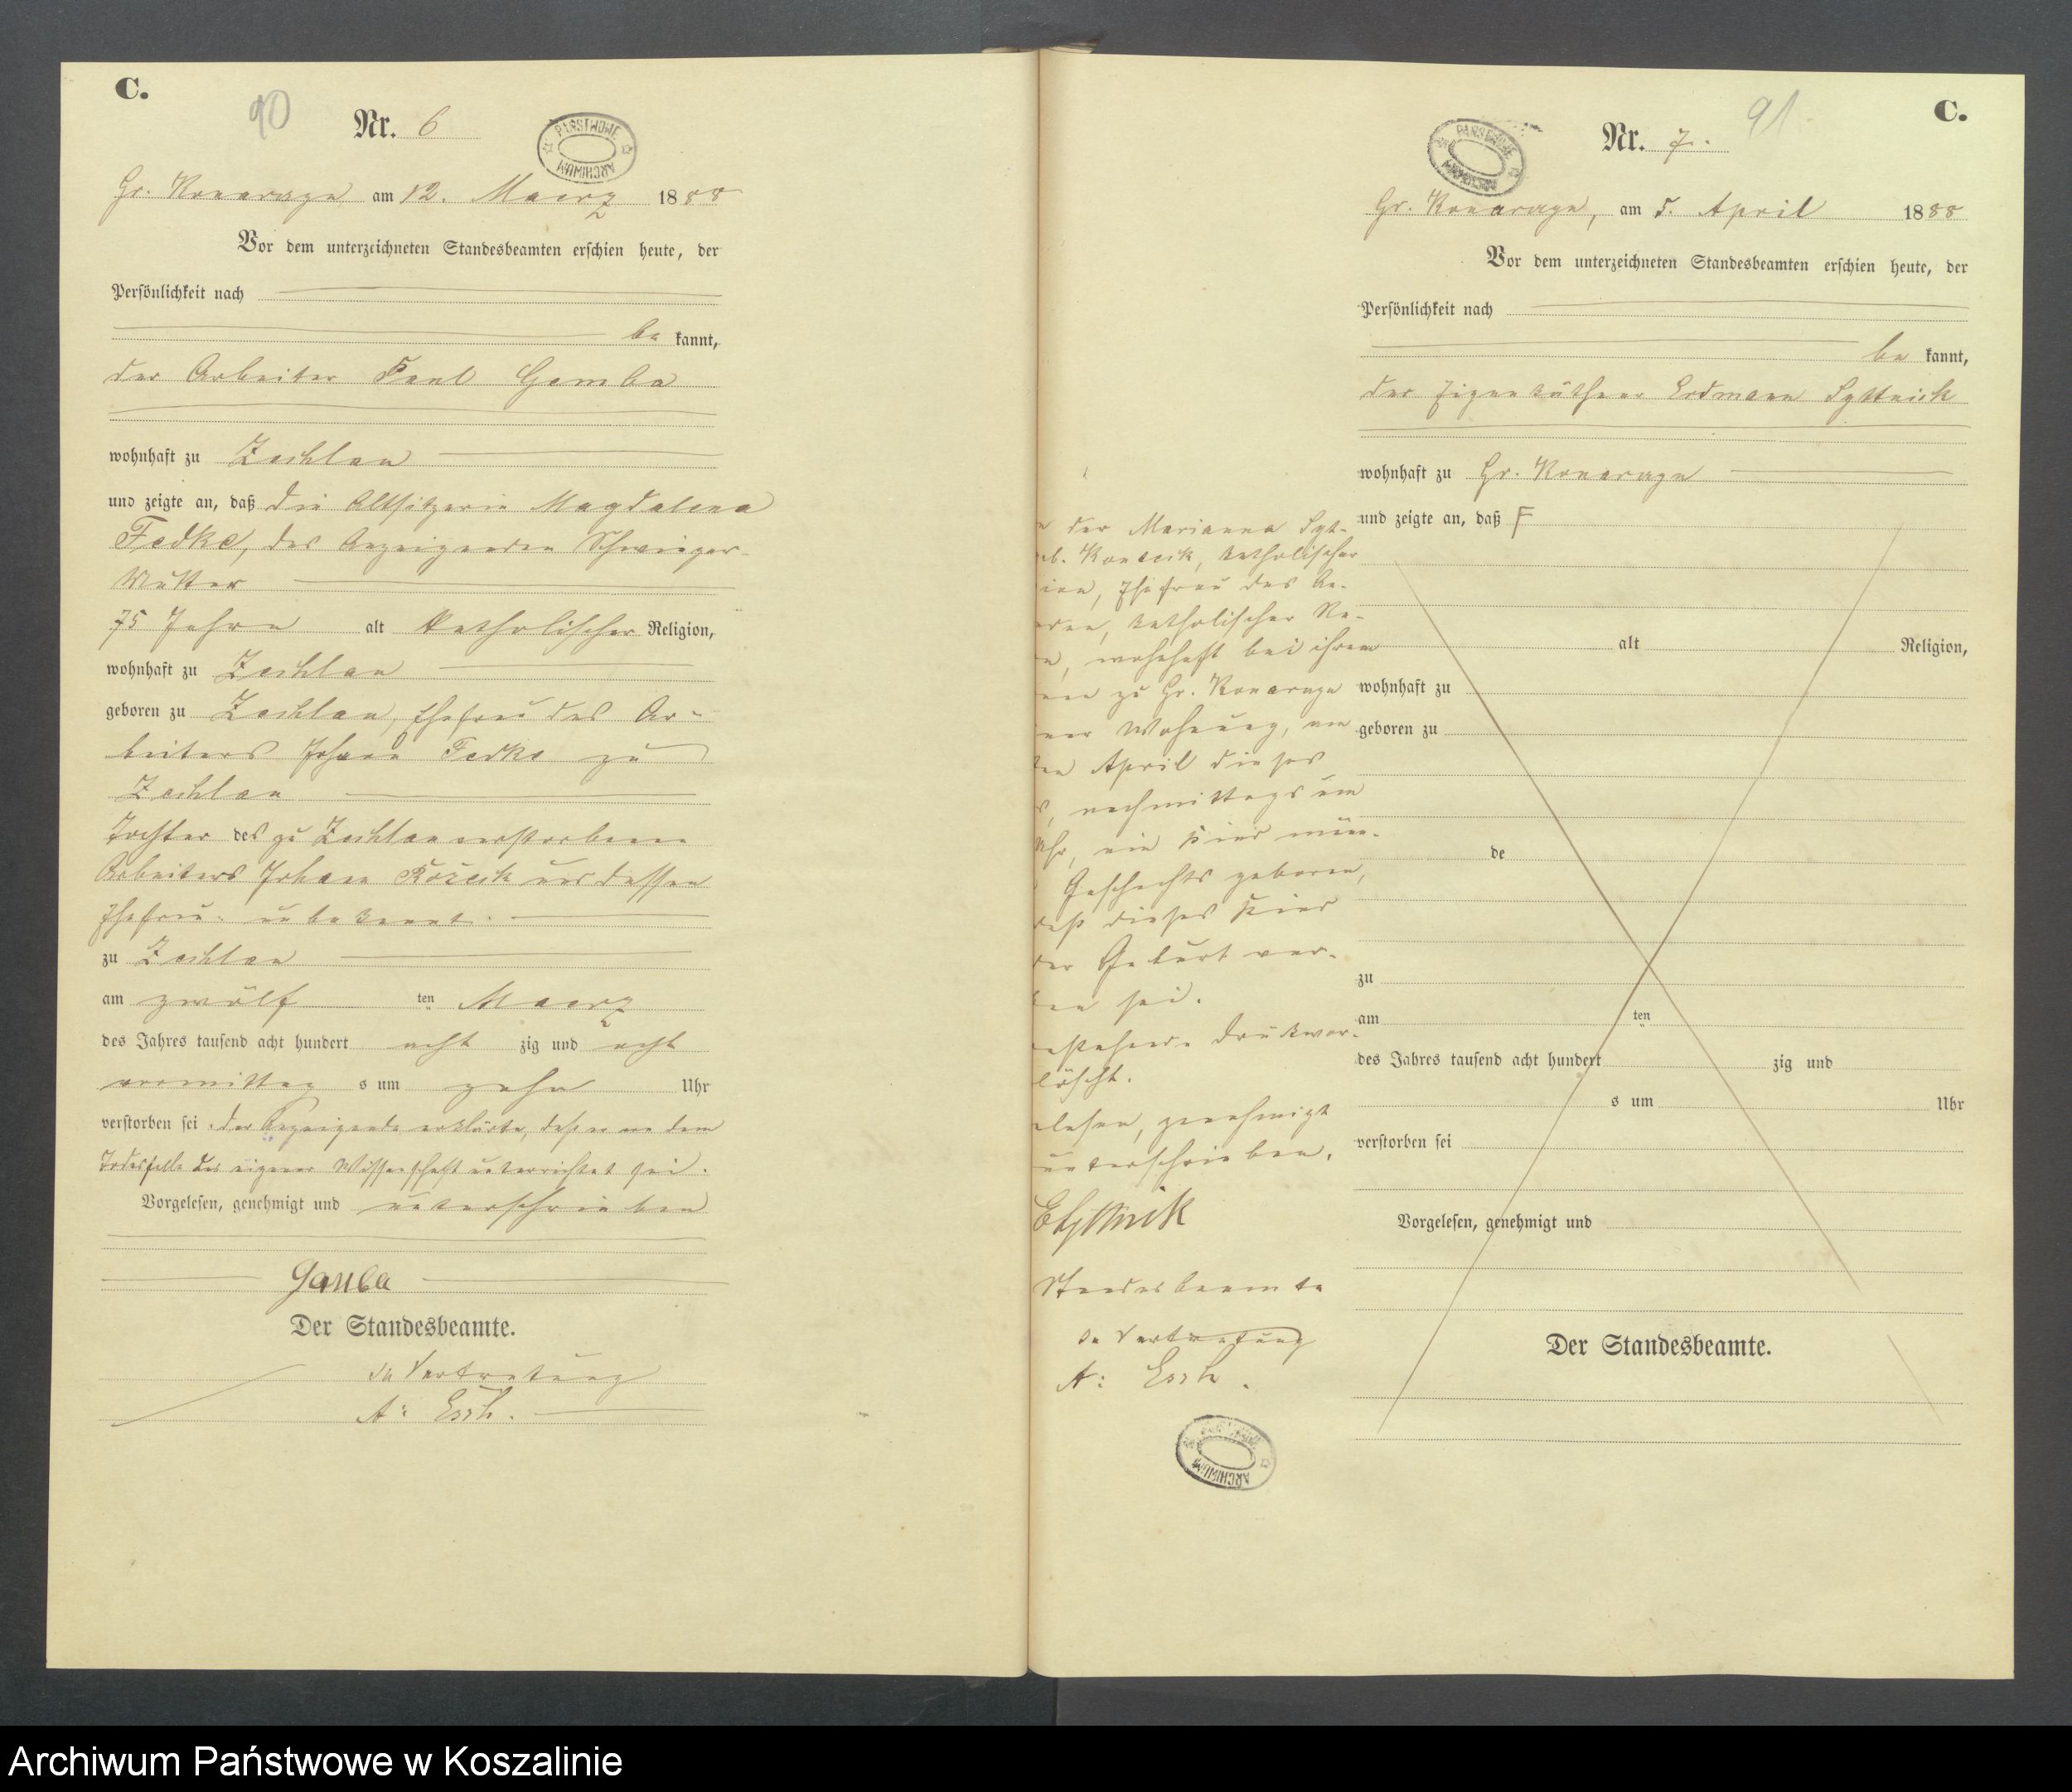 C.
90
Nr. 6
PAŃSTWOWE ARCHIWUM
Gr. Konarczyn am 12. Maerz 1888
Vor dem unterzeichneten Standesbeamten erschien heute, der
Persönlichkeit nach
be kannt,
der Arbeiter Paul Gomba
wohnhaft zu Zechlau
und zeigte an, daß die Altsitzerin Magdalena
Fedke, des Anzeigenden Schwieger-
Mutter
75 Jahre alt katholischer Religion,
wohnhaft zu Zechlau
geboren zu Zechlau, Ehefrau des Ar-
beiters Johann Fedke zu
Zechlau
Tochter des zu Zechlau verstorbenen
Arbeiters Johann und dessen
Ehefrau unbekannt.
zu Zechlau
am zwölf ten Maerz
des Jahres tausend acht hundert acht zig und acht
vormittag s um zehn Uhr
verstorben sei. der Anzeigende erklärte, daß er von dem
Todesfalle aus eigener Wissenschaft unterrichtet sei.
Vorgelesen, genehmigt und unterschrieben
Der Standesbeamte.
In Vertretung
A:
C.
91.
Nr. 7.
PAŃSTWOWE ARCHIWUM
Gr. Konarczyn, am 5. April 1888
Vor dem unterzeichneten Standesbeamten erschien heute, der
Persönlichkeit nach
be kannt,
der Eigenkäthner Erdmann
wohnhaft zu Gr. Konarczyn
und zeigte an, daß
alt Religion,
wohnhaft zu
geboren zu
de
zu
am ten
des Jahres tausend acht hundert zig und
s um Uhr
verstorben sei
Vorgelesen, genehmigt und
Der Standesbeamte.
der Marianna
katholischer
Ehefrau des An-
katholischer Re-
wohnhaft bei ihrem
zu Gr. Konarczyn
Wohnung, am
April dieses
nachmittags um
Uhr, ein Kind männ-
Geschlechts geboren,
daß dieses Kind
der Geburt ver-
sei.
Druckwor-
löscht.
genehmigt
unterschrieben.
Standesbeamte
In Vertretung
A:
PAŃSTWOWE ARCHIWUM
Archiwum Państwowe w Koszalinie